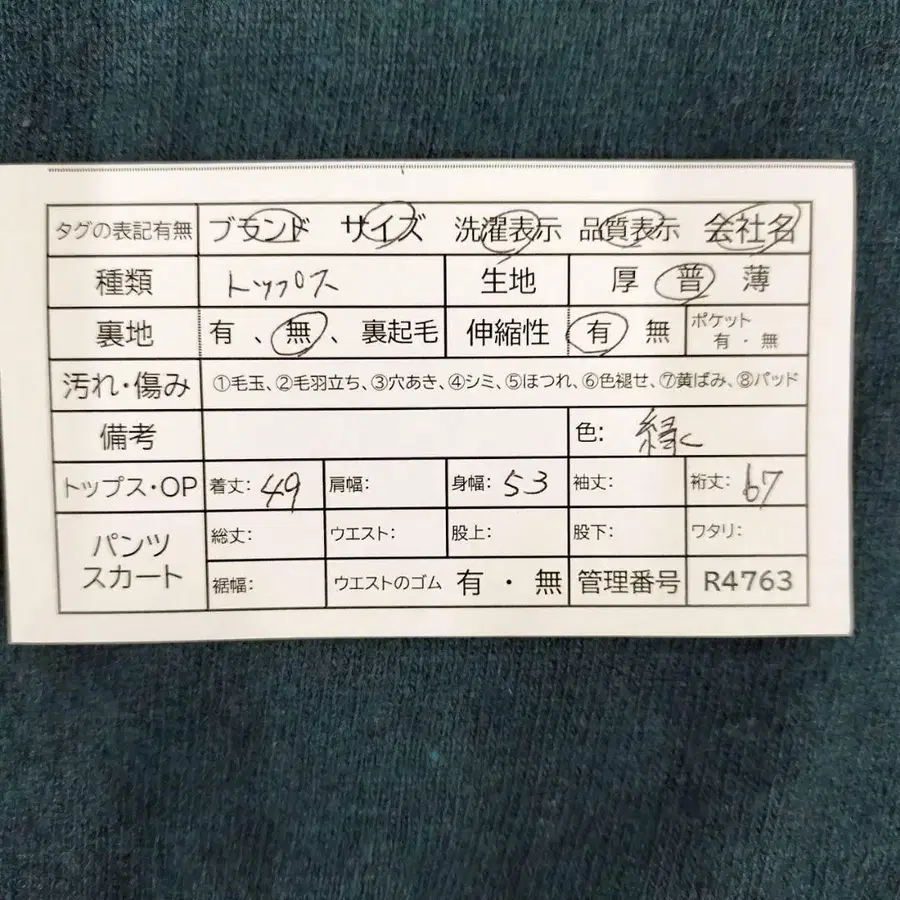 タグの表記有無 ブランド サイズ 洗濯表示 品質表示 会社名
種類 トップス 生地 厚 普 薄
裏地 有 、無 、裏起毛 伸縮性 有 無 ポケット 有・無
汚れ・傷み ①毛玉、②毛羽立ち、③穴あき、④シミ、⑤ほつれ、⑥色褪せ、⑦黄ばみ、⑧パッド
備考 色: 緑
トップス・OP 着丈: 49 肩幅: 身幅: 53 袖丈: 裄丈: 67
パンツ スカート 総丈: ウエスト: 股上: 股下: ワタリ:
裾幅: ウエストのゴム 有・無 管理番号 R4763